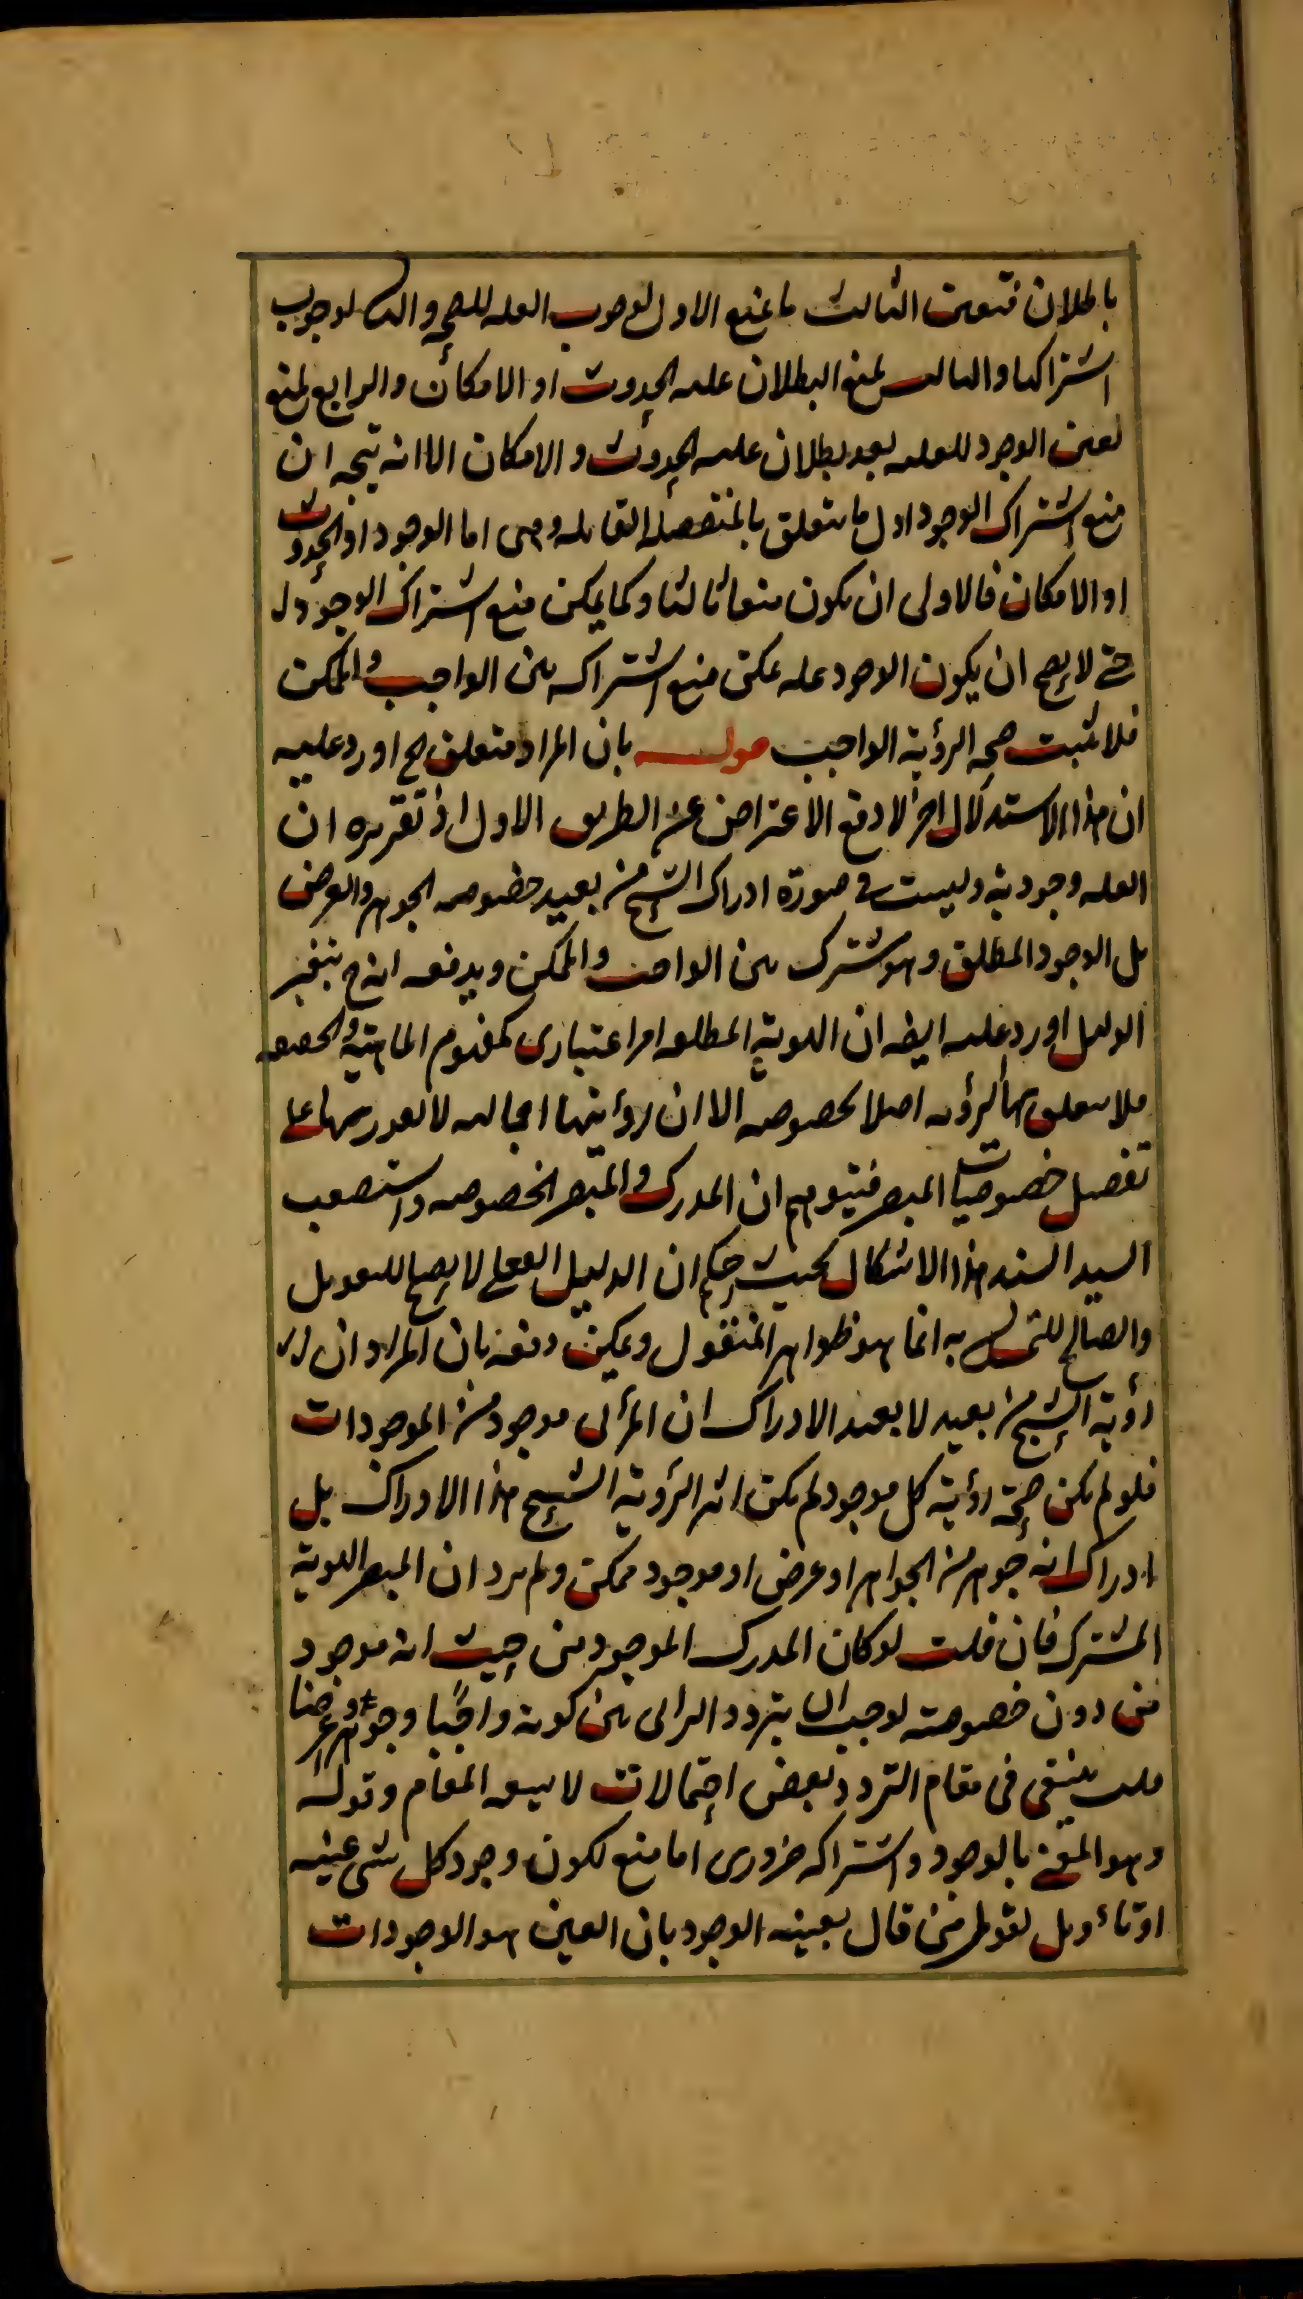 باطلان فتعين الثالث ما بمنع الاول لوجوب العله للصحه والثانى لوجوب
اشتراكها والثالث بمنع البطلان عليه الحدوث او الامكان والرابع بمنع
تعين الوجود للعليه بعد بطلان عليه الحدوث والامكان الا انه يتجه ان
منع اشتراك الوجود اول ما يتعلق بالمنفصله القائله وهى اما الوجود او الحدوث
او الامكان فالاولى ان يكون منعا ثالثا وكما يمكن منع اشتراك الوجود
حتى لا يصح ان يكون الوجود عله يمكن منع اشتراكه بين الواجب والممكن
فلا تثبت صحه الرؤية الواجب قوله بان المراد متعلق ح اورد عليه
ان هذا الاستدلال اخر لا دفع الاعتراض عن الطريق الاول اذ تقريره ان
العله وجودية وليست فى صورة ادراك الشبح من بعيد خصوصه الجوهر والعرض
بل الوجود المطلق وهو مشترك بين الواجب والممكن ويدفعه انه ح يتغير
الدليل اورد عليه ايضه ان الهوية المطلقه امر اعتبارى كمفهوم الماهية والحقيقه
فلا يتعلق بها الرؤيه اصلا لخصوصه الا ان رؤيتها اجماليه لا يقدر بها على
تفصيل خصوصيات المبصر فيتوهم ان المدرك والمبصر الخصوصه واستصعب
السيد السند هذا الاشكال بحيث حكم ان الدليل العقلى لا يصح للتعويل
والصالح للتمسك به انما هو ظواهر المنقول ويمكن دفعه بان المراد ان
رؤية الشبح من بعيد لا يفيد الادراك ان المرئى موجود من الموجودات
فلو لم يكن صحة رؤية كل موجود لم يكن اثر الرؤية الشبح هذا الادراك بل
ادراك انه جوهر من الجواهر او عرض او موجود ممكن ولم يرد ان المبصر الهوية
المشترك فان قلت لو كان المدرك الموجود من حيث انه موجود
من دون خصوصيته لوجب ان يتردد الرائى بين كونه واجبا وجوهرا وعرضا
قلت ينتفى فى مقام التردد بعض احتمالات لا يسعه المقام وقوله
وهو المعنى بالوجود واشتراكه ضرورى اما منع لكون وجود كل شى عينه
او تاءويل لقول من قال بعينه الوجود بان العين هو الوجودات